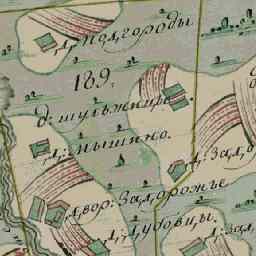 д. Подгороды
189.
д: шульжицы
д: мышино.
д: Зад
двор: Задорожье
д. Дубовцы.
д: Зад